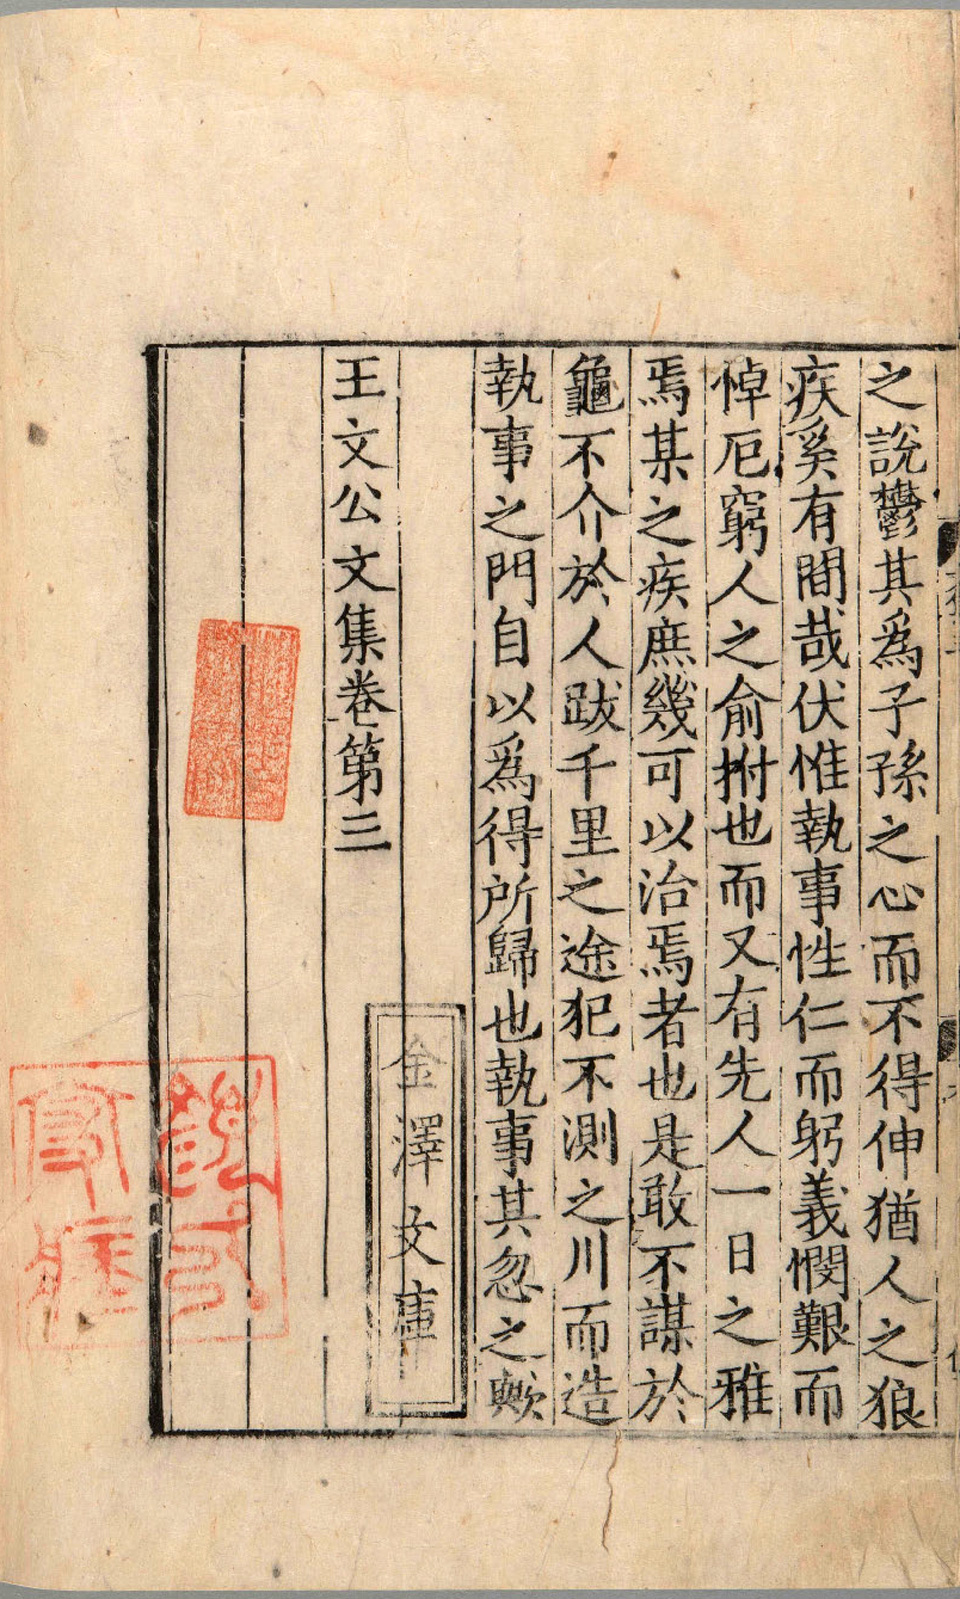 之說鬱其爲子孫之心而不得伸猶人之狼
疾奚有間哉伏惟執事性仁而躬義憫艱而
悼厄窮人之俞拊也而又有先人一日之雅
焉某之疾庶幾可以治焉者也是敢不謀於
龜不介於人跋千里之途犯不測之川而造
執事之門自以爲得所歸也執事其忽之歟
金澤文庫
王文公文集卷第三